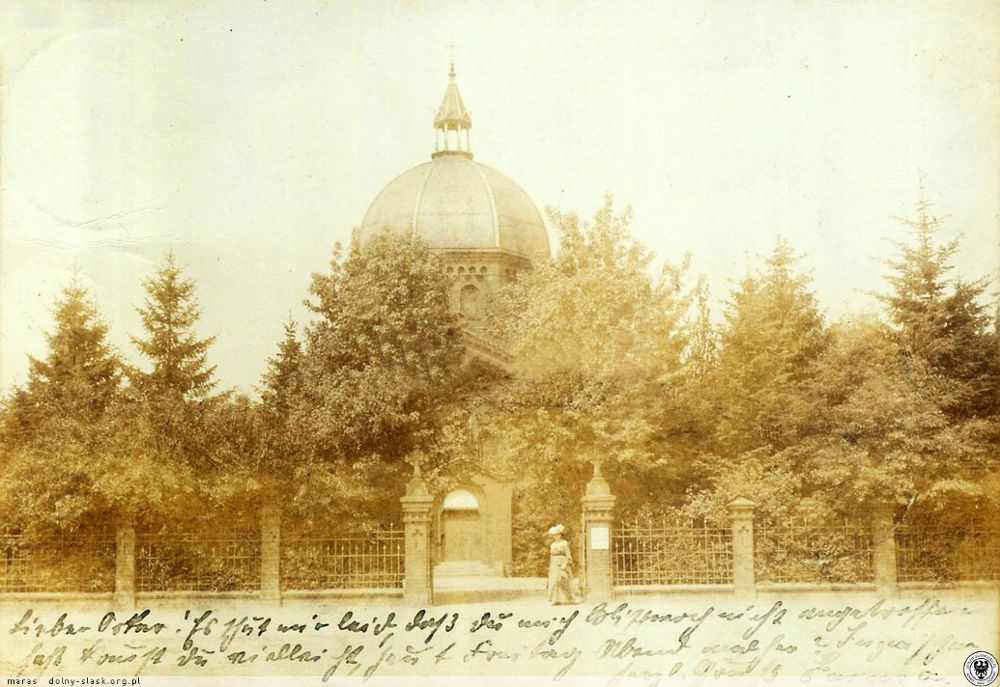 Lieber Oskar! Es thut mir leid daß du mich Mittwoch nicht angetroffen
hast kommst du vielleicht heut Freitag Abend
herzl. Gruß
maras dolny-slask.org.pl